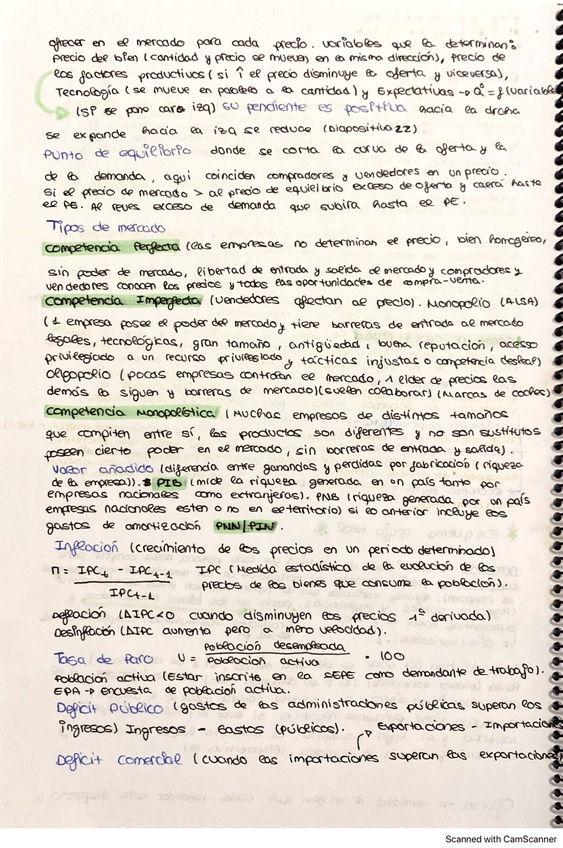 ofrecer en el mercado para cada precio. variables que la determinan:
precio del bien (cantidad y precio se mueven en la misma dirección), precio de
los factores productivos (si ↑ el precio disminuye la oferta y viceversa),
Tecnología (se mueve en paralelo a la cantidad) y Expectativas → Qº = f(variable
(Sr se pone cara izq) su pendiente es positiva hacia la drcha
se expande hacia la izq se reduce (Diapositiva 22)
Punto de equilibrio donde se corta la curva de la oferta y la
de la demanda, aquí coinciden compradores y vendedores en un precio.
Si el precio de mercado > al precio de equilibrio exceso de oferta y caerá hasta
el PE. Al reves exceso de demanda que subira hasta el PE.
Tipos de mercado
Competencia Perfecta (las empresas no determinan el precio, bien homogéneo,
sin poder de mercado, libertad de entrada y salida al mercado y compradores y
vendedores conocen los precios y todas las oportunidades de compra-venta.
Competencia Imperfecta (vendedores afectan al precio). Monopolio (ALSA)
(1 empresa posee el poder del mercado y tiene barreras de entrada al mercado
legales, tecnológicas, gran tamaño, antigüedad, buena reputación, acceso
privilegiado a un recurso privilegiado y tácticas injustas o competencia desleal)
Oligopolio (pocas empresas controlan el mercado, 1 lider de precios las
demás la siguen y barreras de mercado) (suelen colaborar) (Marcas de coches)
Competencia Monopolística (Muchas empresas de distintos tamaños
que compiten entre sí, los productos son diferentes y no son sustitutos
poseen cierto poder en el mercado, sin barreras de entrada y salida).
Valor añadido (diferencia entre ganancias y perdidas por fabricación (riqueza
de la empresa)). PIB (mide la riqueza generada en un país tanto por
empresas nacionales como extranjeras). PNB (riqueza generada por un país
empresas nacionales esten o no en el territorio) si lo anterior incluye los
gastos de amortización PNN/PIN.
Inflación (crecimiento de los precios en un periodo determinado)
Π = IPCt - IPCt-1 IPC (Medida estadística de la evolución de los
IPCt-1 precios de los bienes que consume la población).
Deflación (ΔIPC<0 cuando disminuyen los precios 1ª derivada)
Desinflación (ΔIPC aumenta pero a meno velocidad).
Tasa de Paro U = Población desempleada / Población activa · 100
Población activa (Estar inscrito en la SEPE como demandante de trabajo).
EPA → encuesta de población activa.
Deficit Público (gastos de las administraciones públicas superan los
ingresos) Ingresos - Gastos (públicos). Exportaciones - Importaciones
Deficit comercial (cuando las importaciones superan las exportaciones)
Scanned with CamScanner